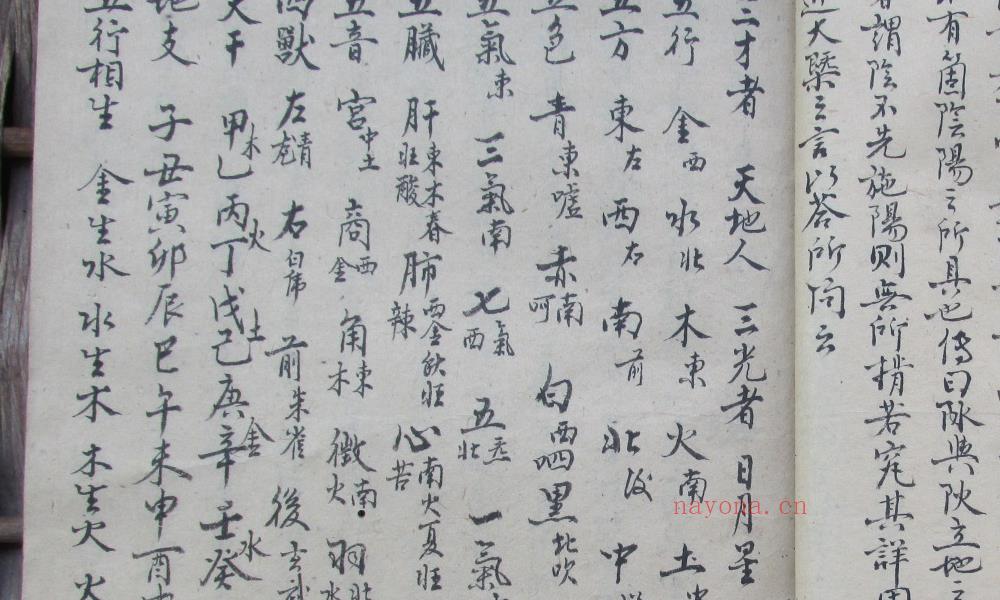 有箇陰陽之所具也傳曰陰與陽立地之
者謂陰不先施陽則無所稽若究其詳
大槩之言以荅所问云
三才者 天地人 三光者 日月星
五行 金西 水北 木東 火南 土
五方 東左 西右 南前 北後 中
五色 青東嘘 赤南呵 白西呬 黑北吹
五氣東 三氣南 七氣西 五炁北 一氣
五臟 肝東木春旺酸 肺西金秋旺辣 心南火夏旺苦
五音 宮中土 商西金 角東木 徵南火 羽北水
四獸 左青龍 右白虎 前朱雀 後玄武
天干 甲乙木 丙丁火 戊己土 庚辛金 壬癸水
地支 子丑寅卯辰巳午未申酉
五行相生 金生水 水生木 木生火 火
nayona.cn